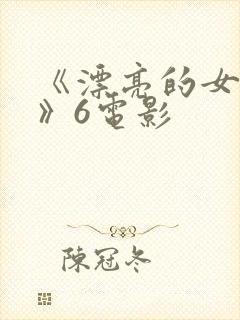 《漂亮的女
》6電影
陳冠冬